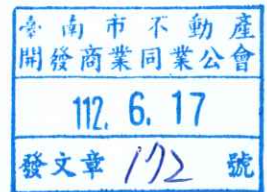 臺南市不動產
開發商業同業公會
112. 6. 17
發文章 172 號